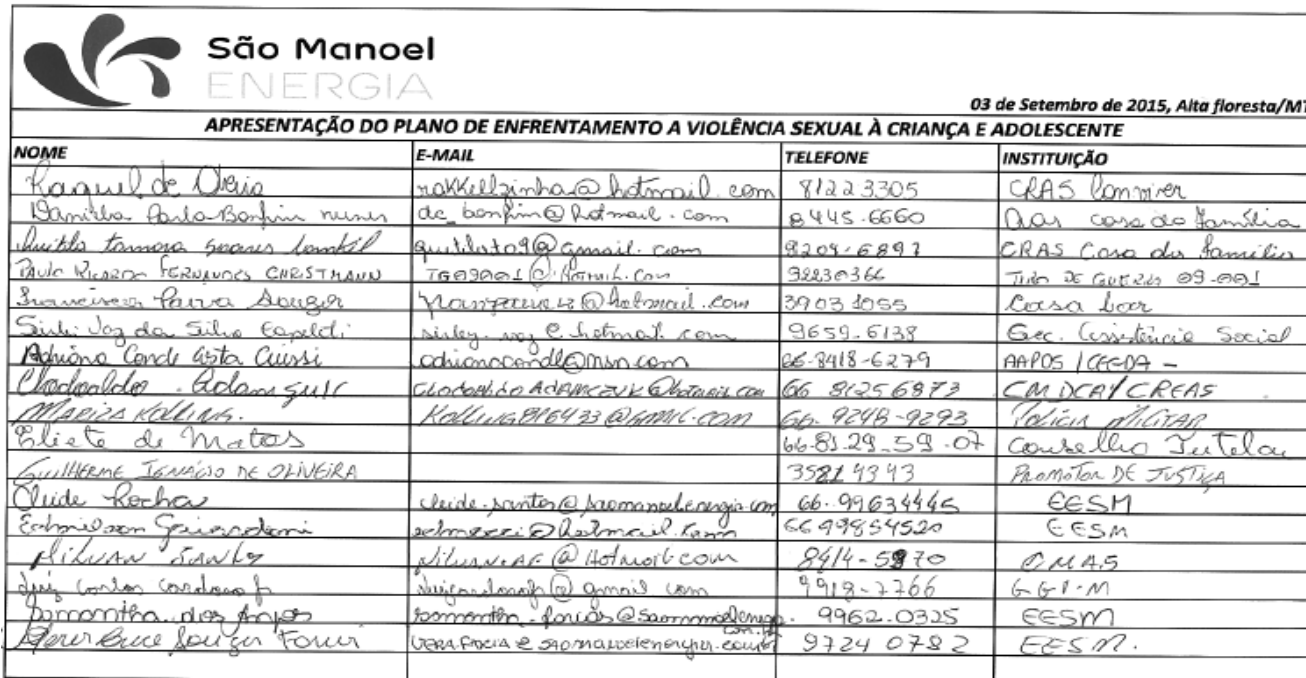 São Manoel
ENERGIA
03 de Setembro de 2015, Alta floresta/MT
APRESENTAÇÃO DO PLANO DE ENFRENTAMENTO A VIOLÊNCIA SEXUAL À CRIANÇA E ADOLESCENTE
NOME E-MAIL TELEFONE INSTITUIÇÃO
Raquel de rakkellzinha@hotmail.com 81223305 CRAS Conviver
Paula Bonfim nunes dc_bonfim@hotmail.com 8445-6660 Cras casa da Família
tamara soares @gmail.com 9204-6897 CRAS Casa da família
Paulo Ricardo FERNANDES CHRISTMANN TG09001@Hotmail.com 92230366 Tiro DE GUERRA 09-001
Paiva @hotmail.com 39031055 Casa Lar
da Silva @hotmail.com 9659-6138 Sec. Assistência Social
Adriana Conde adrianaconde@msn.com 66-8418-6279 AAPOS /
CLODOALDO ADAMCZUK@hotmail.com 66 81256873 CMDCA/CREAS
MARIZA KOLLING. KOLLING816433@GMAIL.COM 66-9248-9293 Polícia MILITAR
Eliete de Matos 66-81.29-59-07 Conselho Tutelar
GUILHERME IGNÁCIO DE OLIVEIRA 35814343 PROMOTOR DE JUSTIÇA
Cleide Rocha cleide.santos@saomanoelenergia.com 66-99634445 EESM
@hotmail.com 6699854520 EESM
NILVAN SANTOS @Hotmail.com 8414-5870
Luiz Carlos Cardoso Jr @gmail.com 9918-7766 GGI-M
Samantha dos Anjos samantha.farias@saomanoelenergia.com.br 9962-0325 EESM
Souza VERA.FARIA@saomanoelenergia.com.br 97240782 EESM.